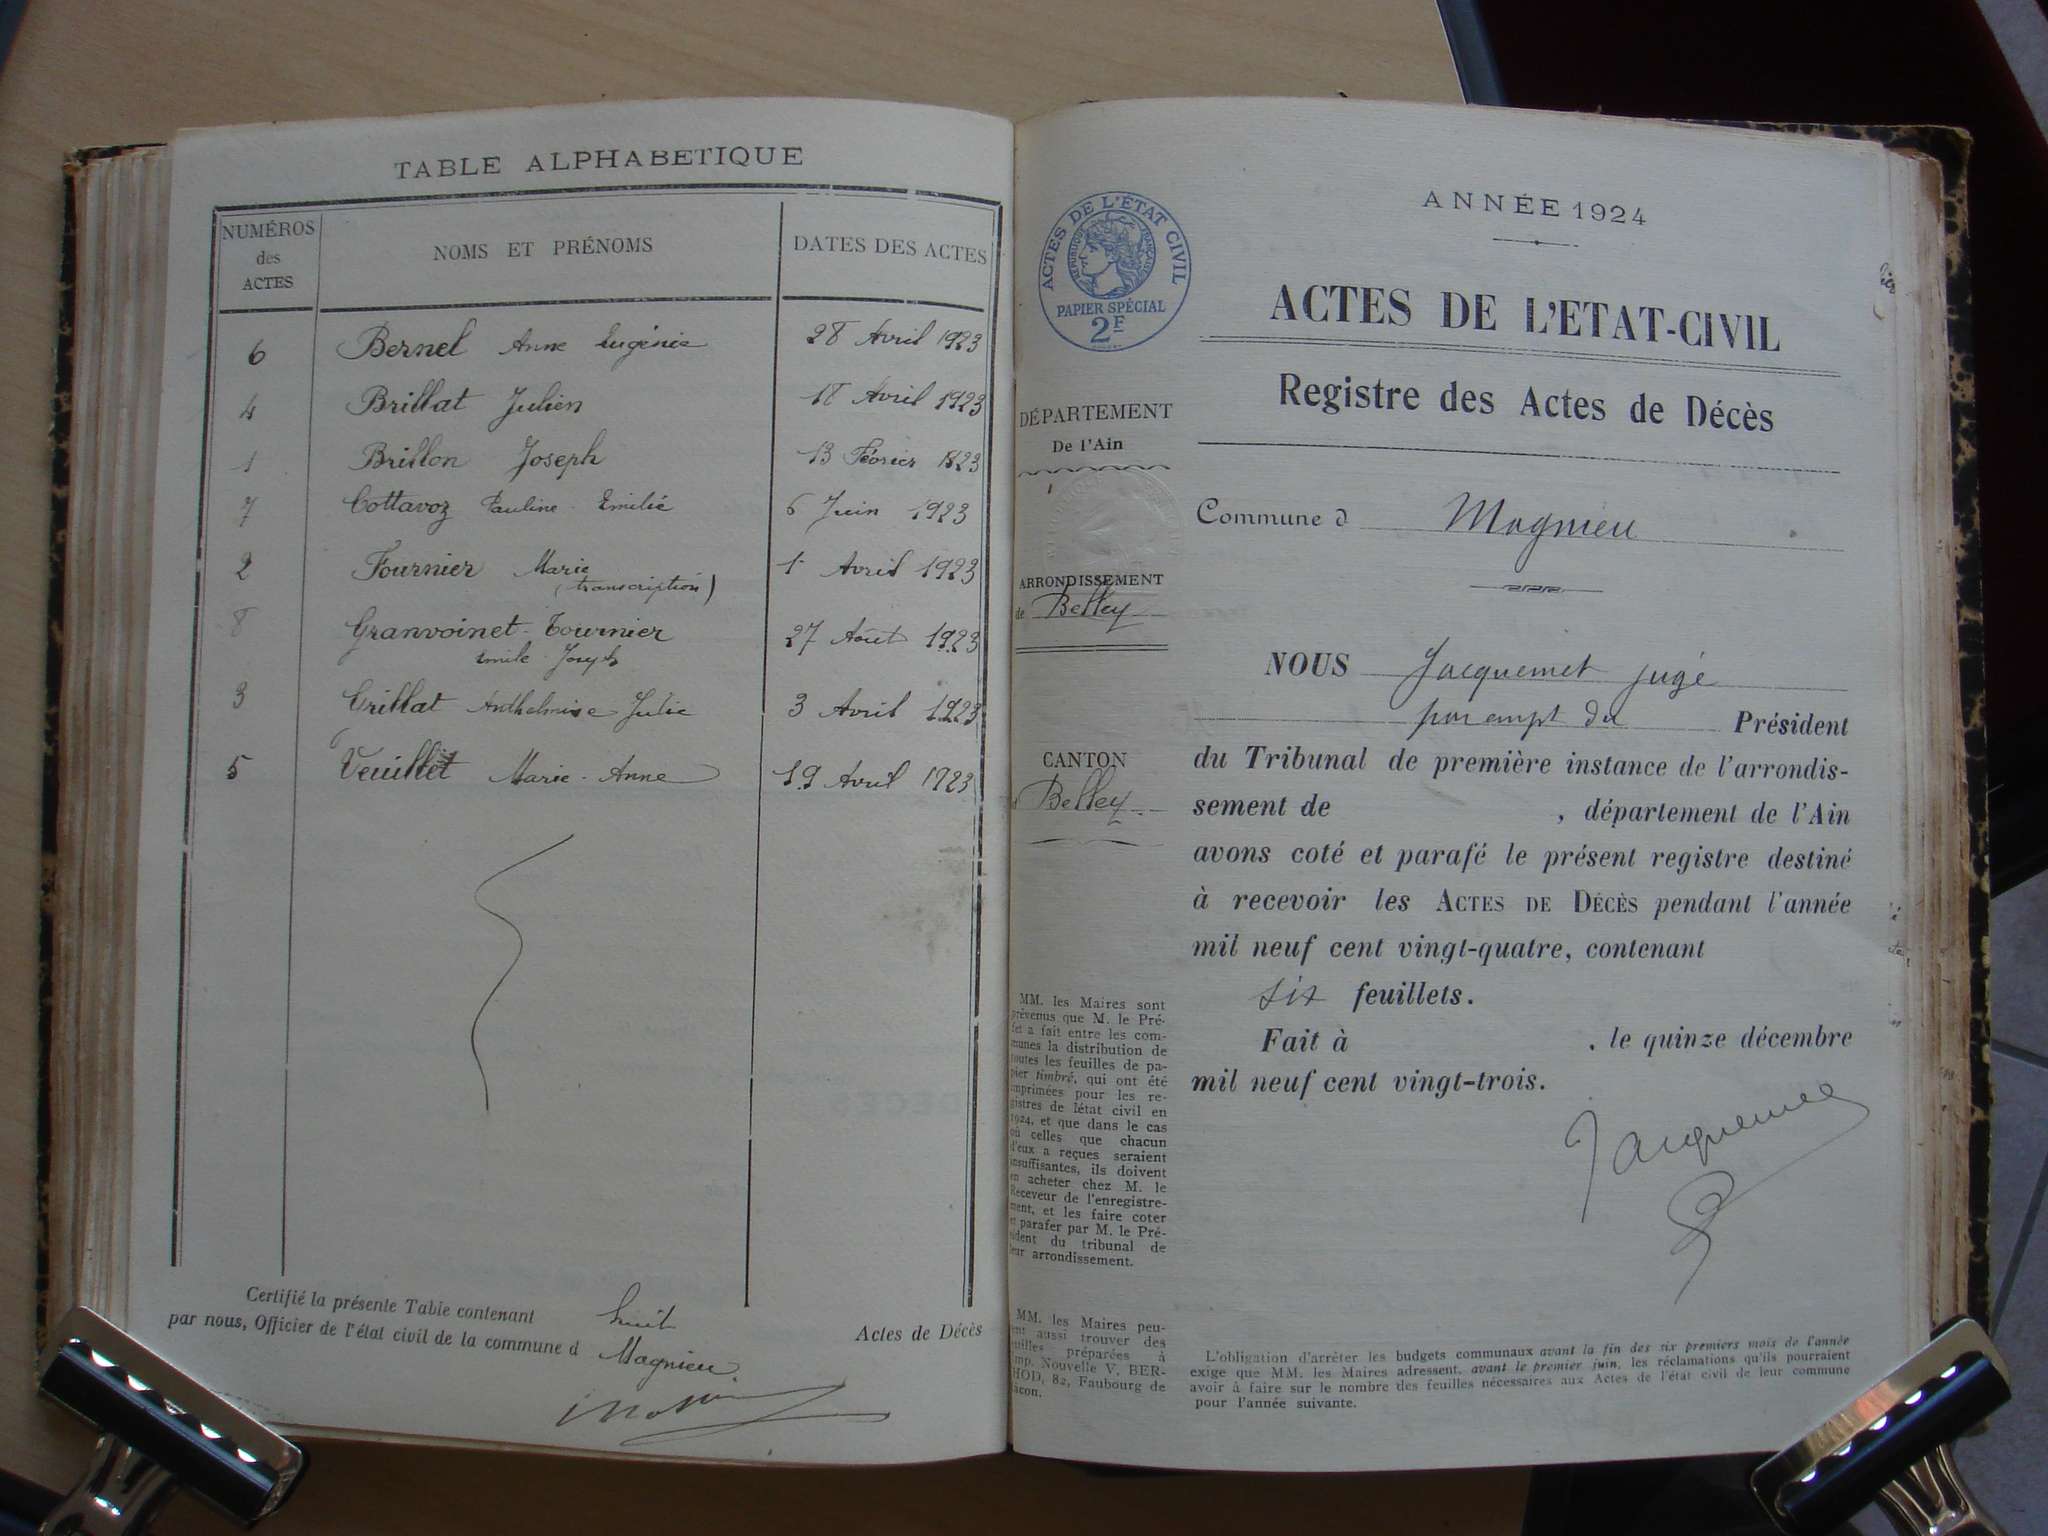 TABLE ALPHABETIQUE
NUMÉROS des ACTES NOMS ET PRÉNOMS DATES DES ACTES
6 Bernel Anne Eugénie 28 Avril 1923
4 Brillat Julien 18 Avril 1923
1 Brillon Joseph 13 Février 1923
7 Cottavoz Pauline Emilie 6 Juin 1923
2 Fournier Marie 1 Avril 1923
(transcription)
8 Granvoinet-Tournier 27 Août 1923
Emile Joseph
3 Grillat Anthelmise Julie 3 Avril 1923
5 Veuillet Marie-Anne 19 Avril 1923
Certifié la présente Table contenant huit Actes de Décès
par nous, Officier de l'état civil de la commune d Magnieu
ANNÉE 1924
ACTES DE L'ÉTAT CIVIL
RÉPUBLIQUE FRANÇAISE
PAPIER SPÉCIAL
2F
ACTES DE L'ETAT-CIVIL
Registre des Actes de Décès
DÉPARTEMENT
De l'Ain
Commune d Magnieu
ARRONDISSEMENT
de Belley
NOUS Jacquemet juge
pour empt du Président
du Tribunal de première instance de l'arrondis-
sement de , département de l'Ain
avons coté et parafé le présent registre destiné
à recevoir les ACTES DE DÉCÈS pendant l'année
mil neuf cent vingt-quatre, contenant
six feuillets.
Fait à , le quinze décembre
mil neuf cent vingt-trois.
Jacquemet
CANTON
d Belley
MM. les Maires sont
prévenus que M. le Pré-
fet a fait entre les com-
munes la distribution de
toutes les feuilles de pa-
pier timbré, qui ont été
imprimées pour les re-
gistres de létat civil en
1924, et que dans le cas
où celles que chacun
d'eux a reçues seraient
insuffisantes, ils doivent
en acheter chez M. le
Receveur de l'enregistre-
ment, et les faire coter
et parafer par M. le Pré-
sident du tribunal de
leur arrondissement.
MM. les Maires peu-
vent aussi trouver des
feuilles préparées à
l'imp. Nouvelle V. BER-
THOD, 82, Faubourg de
Mâcon.
L'obligation d'arrêter les budgets communaux avant la fin des six premiers mois de l'année
exige que MM. les Maires adressent, avant le premier juin, les réclamations qu'ils pourraient
avoir à faire sur le nombre des feuilles nécessaires aux Actes de l'état civil de leur commune
pour l'année suivante.